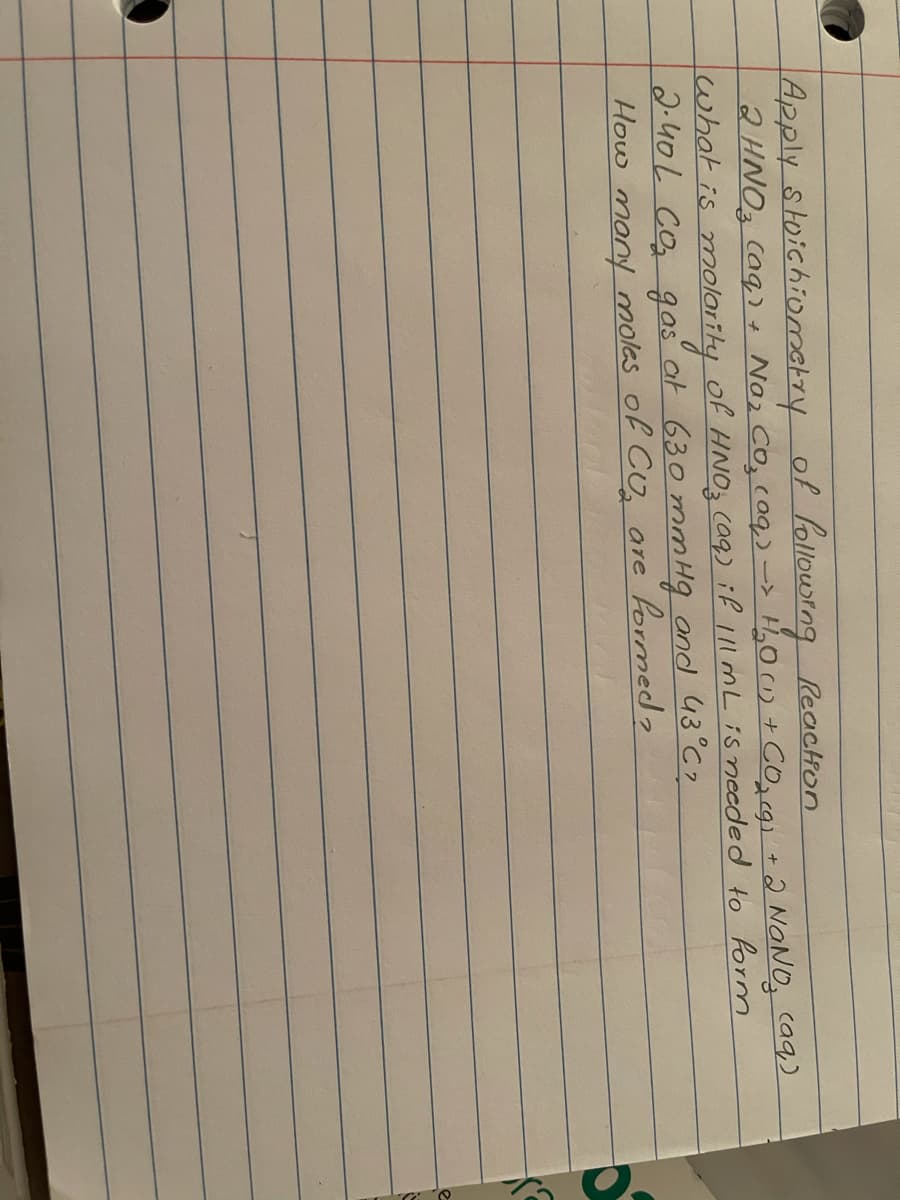 Apply stoichiometry of following Reaction
2 HNO₃ (aq) + Na₂ CO₃ (aq) -> H₂O (l) + CO₂ (g) + 2 NaNO₃ (aq)
what is molarity of HNO₃ (aq) if 111 mL is needed to form
2.40 L CO₂ gas at 630 mmHg and 43°C?
How many moles of CO₂ are formed?